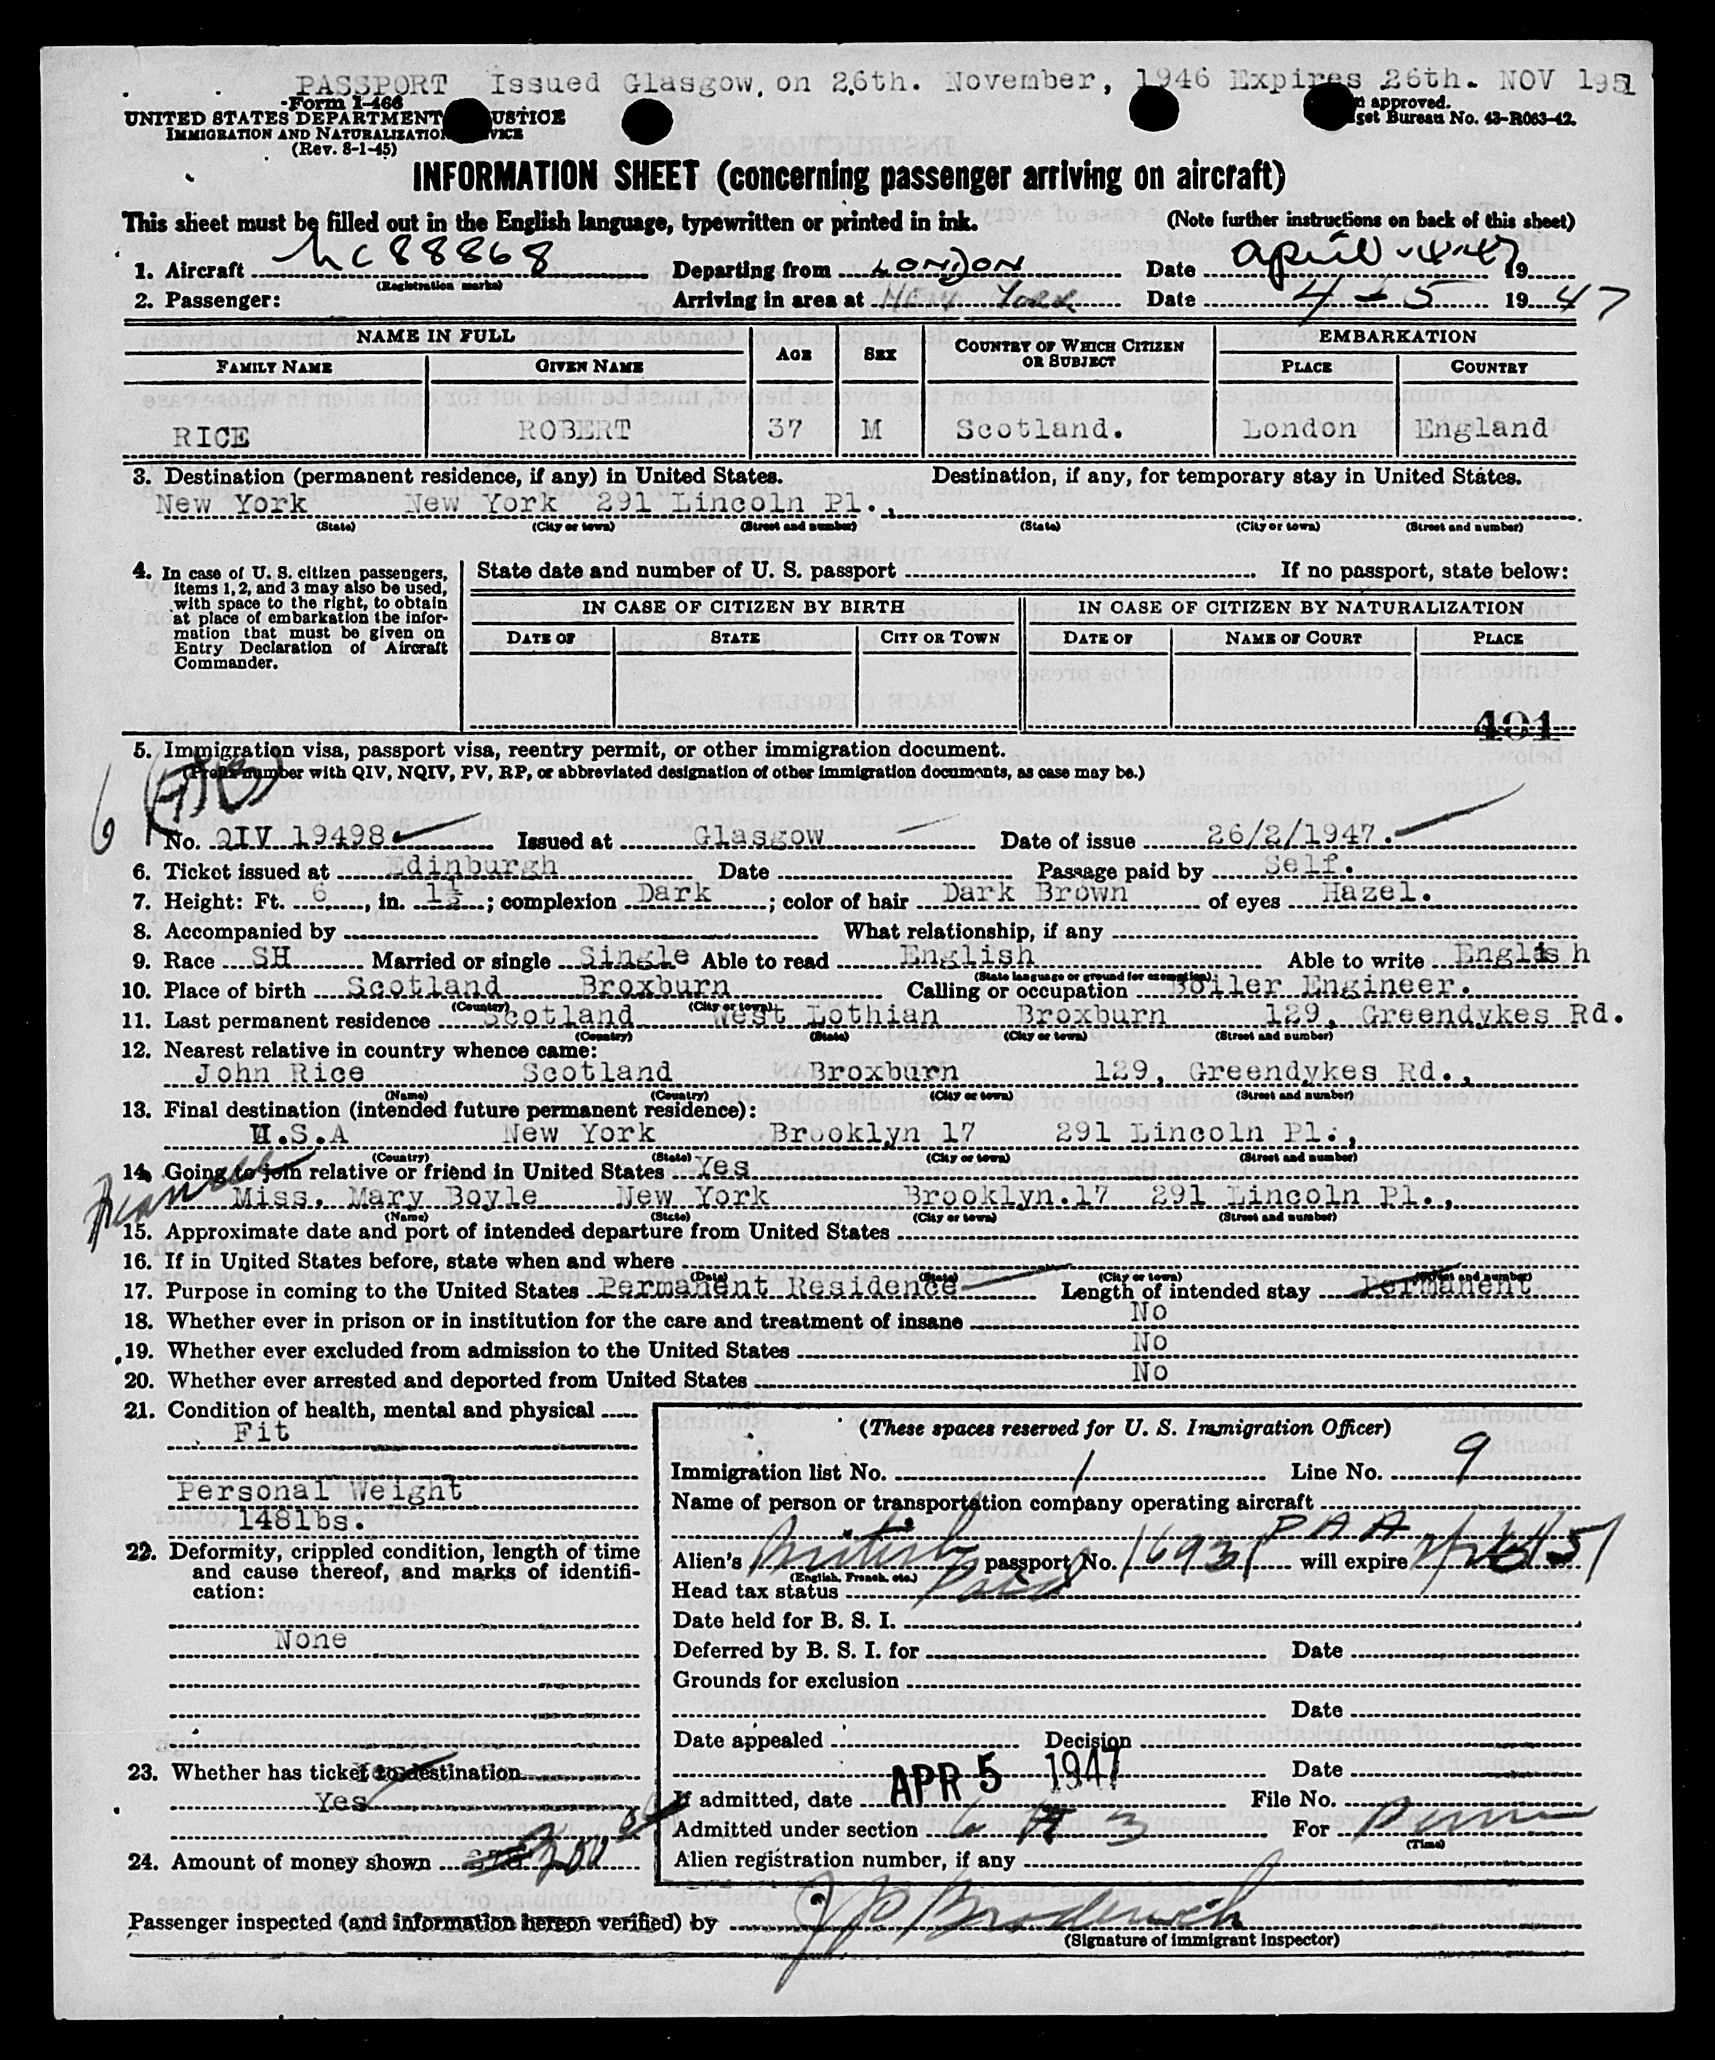 PASSPORT Issued Glasgow, on 26th. November, 1946 Expires 26th. NOV 1951
Form I-466
UNITED STATES DEPARTMENT USTICE
IMMIGRATION AND NATURALIZATIO VICE
(Rev. 8-1-45)
approved.
get Bureau No. 43-R063-42.
INFORMATION SHEET (concerning passenger arriving on aircraft)
This sheet must be filled out in the English language, typewritten or printed in ink. (Note further instructions on back of this sheet)
1. Aircraft NC 88868 Departing from LONDON Date april - 4 - 47 19
(Registration marks)
2. Passenger: Arriving in area at NEW YORK Date 4 - 5 1947
NAME IN FULL AGE SEX COUNTRY OF WHICH CITIZEN OR SUBJECT EMBARKATION
FAMILY NAME GIVEN NAME PLACE COUNTRY
RICE ROBERT 37 M Scotland. London England
3. Destination (permanent residence, if any) in United States. Destination, if any, for temporary stay in United States.
New York New York 291 Lincoln Pl.,
(State) (City or town) (Street and number) (State) (City or town) (Street and number)
4. In case of U. S. citizen passengers, items 1, 2, and 3 may also be used, with space to the right, to obtain at place of embarkation the information that must be given on Entry Declaration of Aircraft Commander.
State date and number of U. S. passport If no passport, state below:
IN CASE OF CITIZEN BY BIRTH IN CASE OF CITIZEN BY NATURALIZATION
DATE OF STATE CITY OR TOWN DATE OF NAME OF COURT PLACE
401
5. Immigration visa, passport visa, reentry permit, or other immigration document.
(Prefix number with QIV, NQIV, PV, RP, or abbreviated designation of other immigration documents, as case may be.)
6
No. QIV 19498 Issued at Glasgow Date of issue 26/2/1947.
6. Ticket issued at Edinburgh Date Passage paid by Self.
7. Height: Ft. 6, in. 1½; complexion Dark; color of hair Dark Brown of eyes Hazel.
8. Accompanied by What relationship, if any
9. Race SH Married or single Single Able to read English Able to write English
(State language or ground for exemption)
10. Place of birth Scotland Broxburn Calling or occupation Boiler Engineer.
(Country) (City or town)
11. Last permanent residence Scotland West Lothian Broxburn 129, Greendykes Rd.
(Country) (State) (City or town) (Street and number)
12. Nearest relative in country whence came:
John Rice Scotland Broxburn 129, Greendykes Rd.,
(Name) (Country) (City or town) (Street and number)
13. Final destination (intended future permanent residence):
U.S.A New York Brooklyn 17 291 Lincoln Pl.,
(Country) (State) (City or town) (Street and number)
14. Going to join relative or friend in United States Yes
Miss. Mary Boyle New York Brooklyn.17 291 Lincoln Pl.,
(Name) (State) (City or town) (Street and number)
15. Approximate date and port of intended departure from United States
16. If in United States before, state when and where
(Date) (State) (City or town) (Street and number)
17. Purpose in coming to the United States Permanent Residence Length of intended stay Permanent
18. Whether ever in prison or in institution for the care and treatment of insane No
19. Whether ever excluded from admission to the United States No
20. Whether ever arrested and deported from United States No
21. Condition of health, mental and physical
Fit
Personal Weight
148lbs.
22. Deformity, crippled condition, length of time and cause thereof, and marks of identification:
None
23. Whether has ticket to destination
Yes
24. Amount of money shown 200
(These spaces reserved for U. S. Immigration Officer)
Immigration list No. 1 Line No. 9
Name of person or transportation company operating aircraft
P A A
Alien's British passport No. 16931 will expire
(English, French, etc.)
Head tax status Paid
Date held for B. S. I.
Deferred by B. S. I. for Date
Grounds for exclusion
Date
Date appealed Decision
Date
If admitted, date APR 5 1947 File No.
Admitted under section 6 A 3 For Perm
(Time)
Alien registration number, if any
Passenger inspected (and information hereon verified) by J P Broderick
(Signature of immigrant inspector)